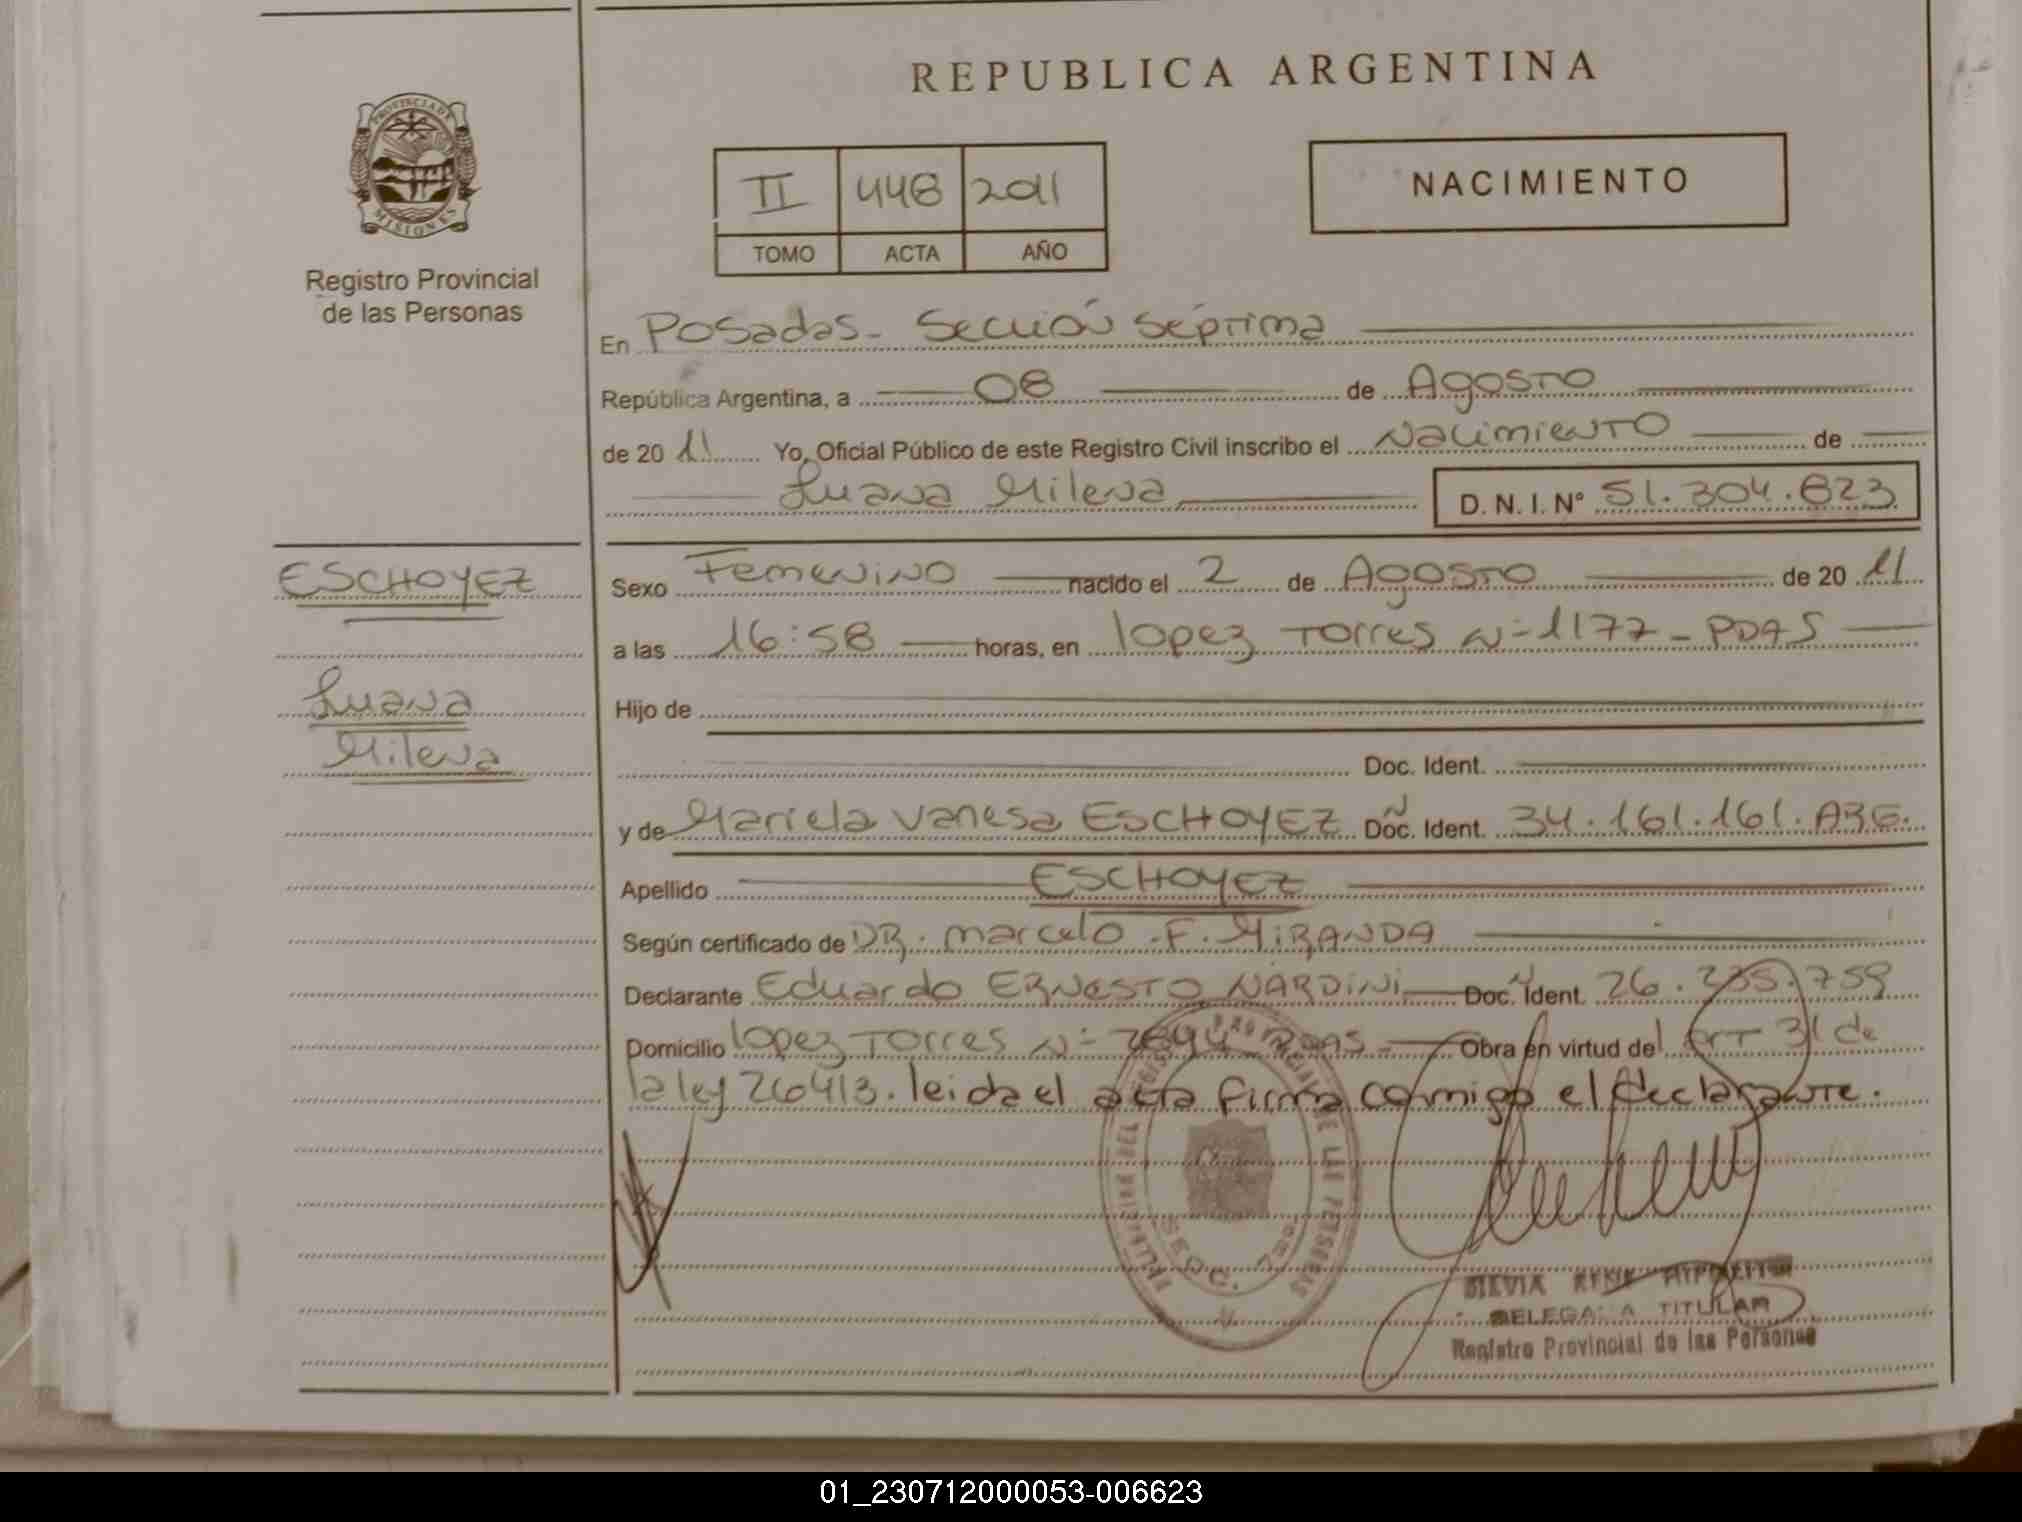 REPUBLICA ARGENTINA
PROVINCIA DE
MISIONES
Registro Provincial
de las Personas
II 448 2011
TOMO ACTA AÑO
NACIMIENTO
En Posadas - Sección Séptima
República Argentina, a 08 de Agosto
de 20 11 Yo, Oficial Público de este Registro Civil inscribo el Nacimiento de
Luana Milena D. N. I. Nº 51.304.823
ESCHOYEZ
Luana
Milena
Sexo Femenino nacido el 2 de Agosto de 20 11
a las 16:58 horas, en lopez Torres N- 1177 - PDAS
Hijo de
Doc. Ident.
y de Mariela Vanesa ESCHOYEZ Doc. Ident. 34.161.161. ARG.
Apellido ESCHOYEZ
Según certificado de DR. Marcelo .F. MIRANDA
Declarante Eduardo ERNESTO NARDINI Doc. Ident. 26.235.759
Domicilio lopez Torres N- PDAS - Obra en virtud del Art 31 de
la ley 26413. leida el acta firma conmigo el declarante.
DEL REGISTRO PROVINCIAL DE LAS PERSONAS
SECC. 7ma.
SILVIA
DELEGADA TITULAR
Registro Provincial de las Personas
01_230712000053-006623